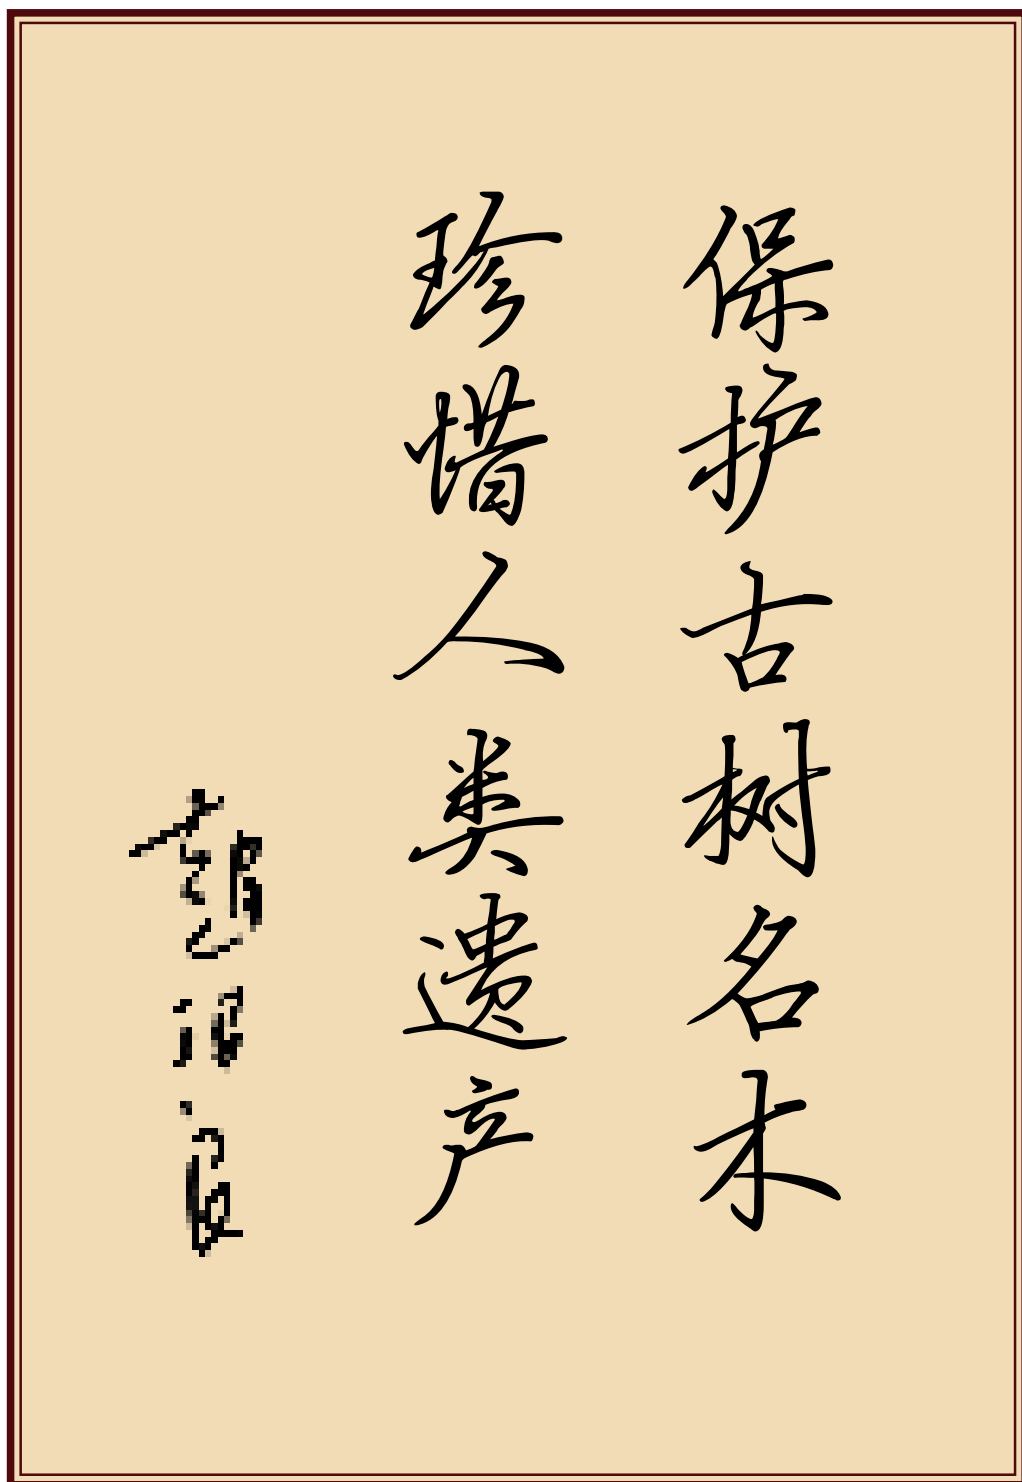 保护古树名木
珍惜人类遗产